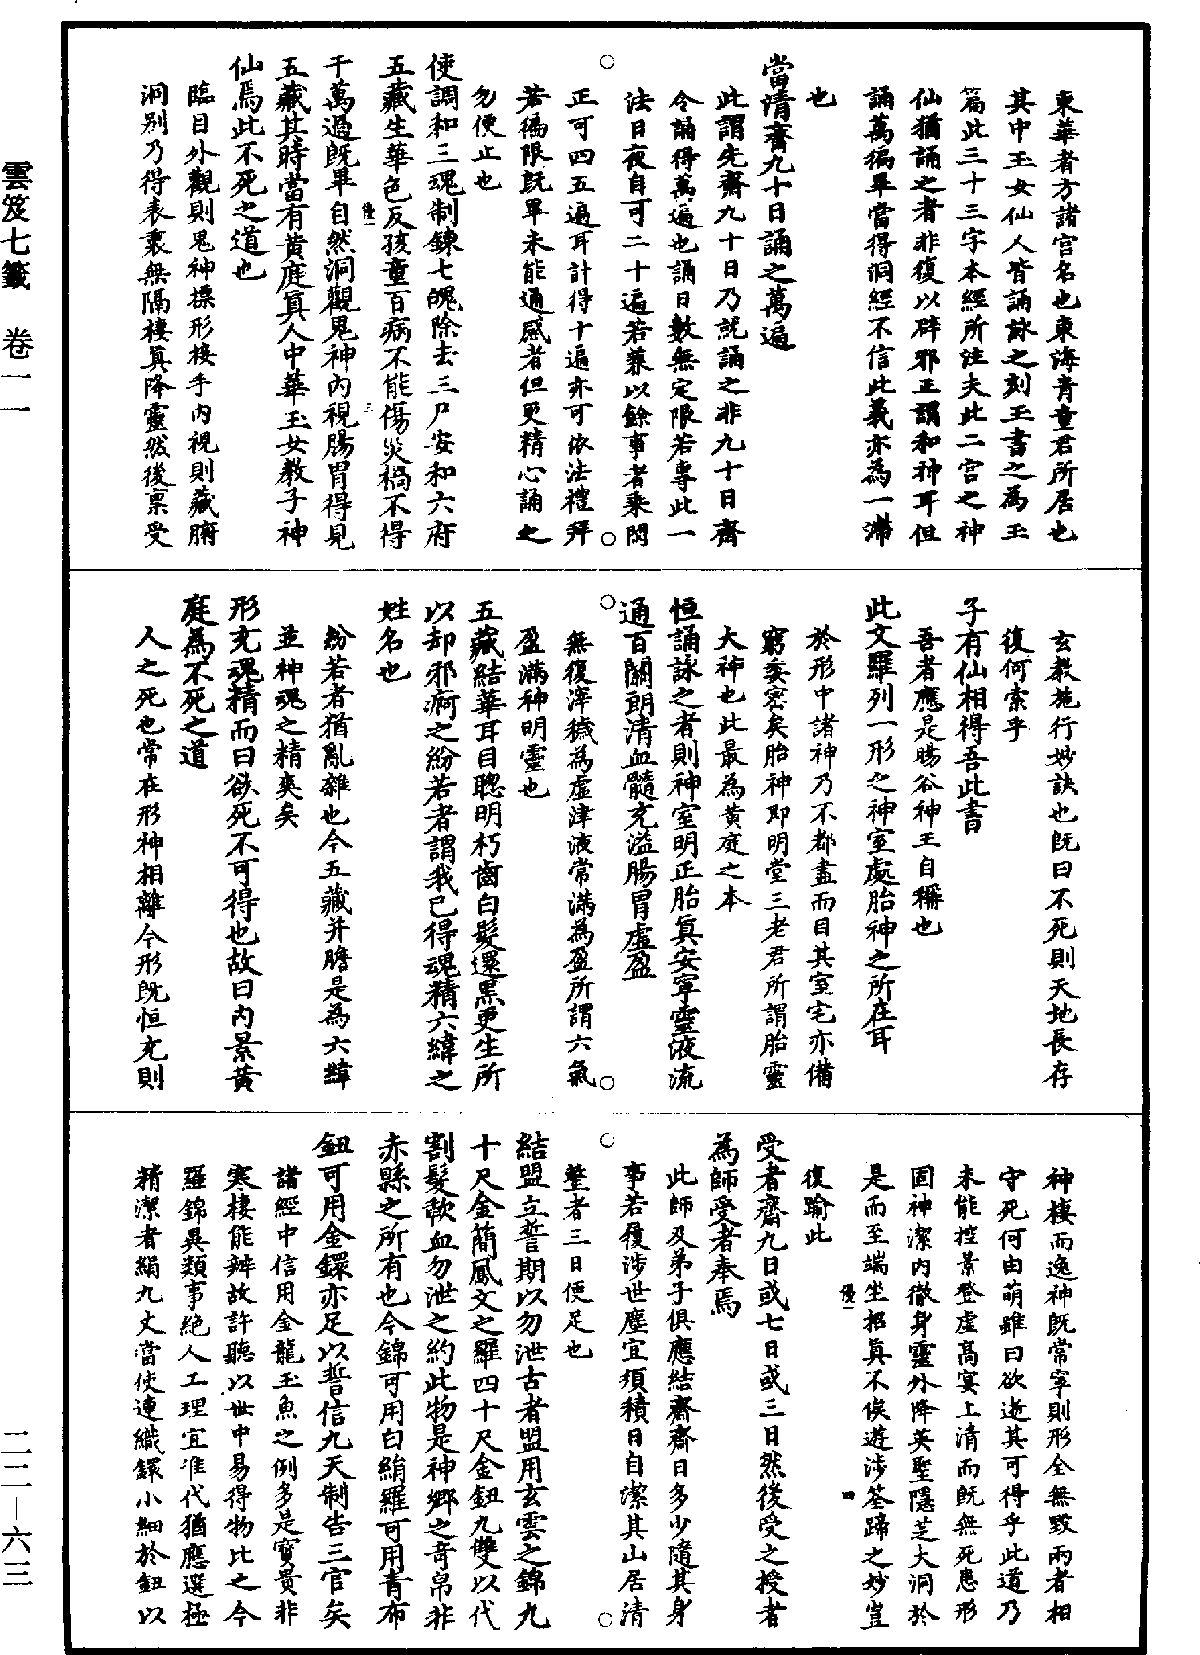 東華者方諸宮名也東海青童君所居也
其中玉女仙人皆誦詠之刻玉書之為玉
篇此三十三字本經所注夫此二宮之神
仙猶誦之者非復以辟邪正謂和神耳但
誦萬徧畢當得洞經不信此義亦為一滯
也
當清齋九十日誦之萬遍
此謂先齋九十日乃就誦之非九十日齋
令誦得萬遍也誦日數無定限若專此一
法日夜自可二十遍若兼以餘事者乘閑
正可四五遍耳計得十遍亦可依法禮拜
若徧限既畢未能通感者但更精心誦之
勿便止也
使調和三魂制鍊七魄除去三尸安和六府
五藏生華色反孩童百病不能傷災禍不得
千萬過既畢自然洞觀鬼神內視腸胃得見
五藏其時當有黃庭真人中華玉女教子神
仙焉此不死之道也
臨目外觀則鬼神摽形接手內視則藏腑
洞別乃得表裏無隔棲真降靈然後稟受
玄教施行妙訣也既曰不死則天地長存
復何索乎
子有仙相得吾此書
吾者應是暘谷神王自稱也
此文羅列一形之神室處胎神之所在耳
於形中諸神乃不都盡而目其室宅亦備
窮委密矣胎神即明堂三老君所謂胎靈
大神也此最為黃庭之本
恒誦詠之者則神室明正胎真安寧靈液流
通百關朗清血髓充溢腸胃虛盈
無復滓穢為虛津液常滿為盈所謂六氣
盈滿神明靈也
五藏結華耳目聰明朽齒白髮還黑更生所
以却邪痾之紛若者謂我已得魂精六緯之
姓名也
紛若者猶亂雜也今五藏并膽是為六緯
並神魂之精爽矣
形充魂精而曰欲死不可得也故曰內景黃
庭為不死之道
人之死也常在形神相離今形既恒充則
神棲而逸神既常寧則形全無毀兩者相
守死何由萌雖曰欲逝其可得乎此道乃
未能控景登虛高宴上清而既無死患形
固神潔內徹身靈外降英聖隱芝大洞於
是而至端坐招真不俟遊涉筌蹄之妙豈
復踰此
受者齋九日或七日或三日然後受之授者
為師受者奉焉
此師及弟子俱應結齋齋日多少隨其身
事若履涉世塵宜須積日自潔其山居清
整者三日便足也
結盟立誓期以勿泄古者盟用玄雲之錦九
十尺金簡鳳文之羅四十尺金鈕九雙以代
割髮歃血勿泄之約此物是神鄉之奇帛非
赤縣之所有也今錦可用白絹羅可用青布
鈕可用金鐶亦足以誓信九天制告三官矣
諸經中信用金龍玉魚之例多是寶貴非
寒棲能辨故許聽以世中易得物比之今
羅錦異類事絕人工理宜准代猶應選極
精潔者絹九丈當使連織鐶小細於鈕以
雲笈七籤 卷一一
二二—六三